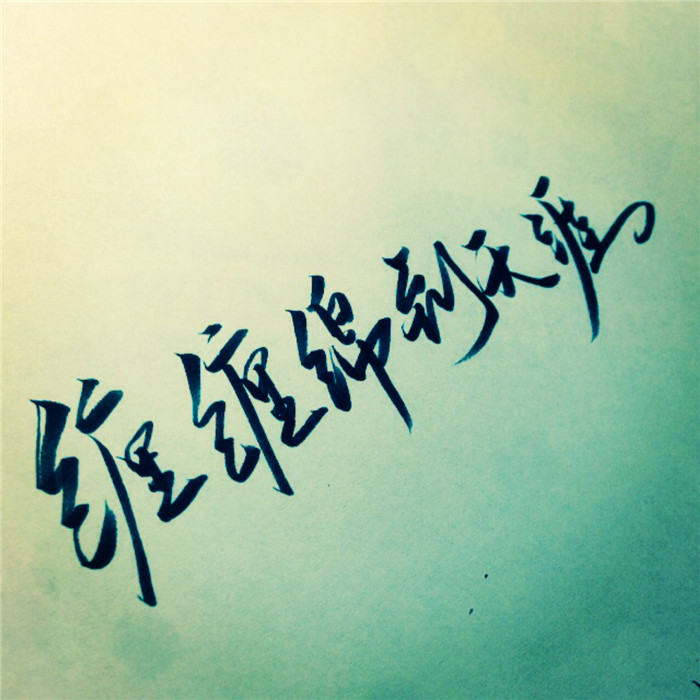 缠缠绵到天涯